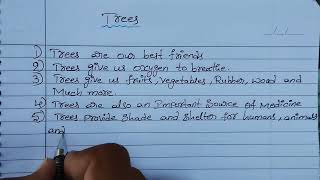 Trees
1) Trees are our best friends
2) Trees give us oxygen to breathe.
3) Trees give us fruits, vegetables, Rubber, wood and
Much more.
4) Trees are also an Important Source of Medicine
5) Trees provide shade and shelter for humans, animals
and